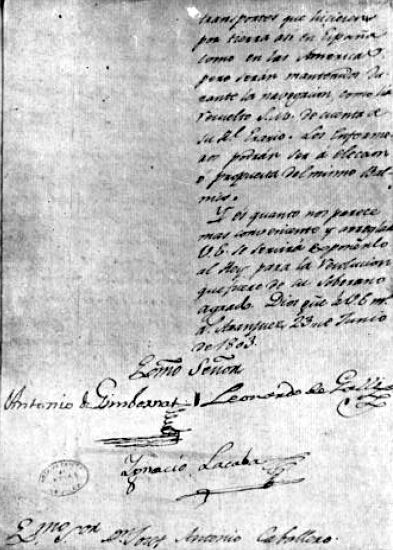 transportes que hicieren
por tierra asi en España
como en las Americas
pero serán mantenidos du
rante la navegacion, como ha
resuelto S.M. de cuenta de
su Rl. Erario. Los Enferme
ros podrán ser a eleccion
o propuesta del mismo Bal
mis.
Y es quanto nos parece
mas conveniente y arreglado
V.E. se servirá exponerlo
al Rey para la resolucion
que fuere de su Soberano
agrado. Dios gue. à V.E. ms.
as. Aranjuez, 23 de Junio
de 1803.
Exmo. Señor
Antonio de Gimbernat Leonardo de Galli
Ignacio Lacaba
Exmo. Sor. Dn. Josef Antonio Caballero.